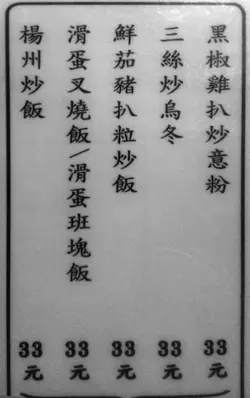 黑椒雞扒炒意粉 33元
三絲炒烏冬 33元
鮮茄豬扒粒炒飯 33元
滑蛋叉燒飯/滑蛋班塊飯 33元
楊州炒飯 33元